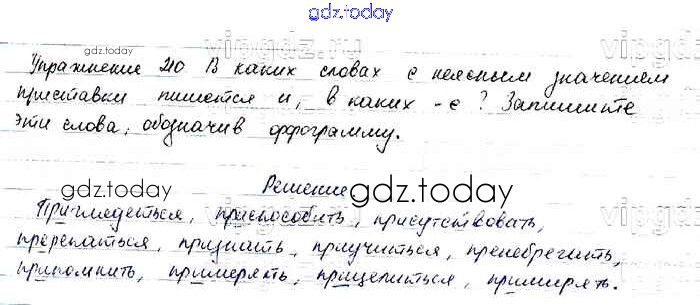 gdz.today
gdz.today
vipgdz.ru
Упражнение 210 В каких словах с неясным значением
приставки пишется и, в каких -е? Запишите
эти слова, обозначив орфограмму.
gdz.today
Решение
gdz.today
Приглядеться, приспособить, присутствовать,
пререкаться, признать, приучиться, пренебрегать,
припомнить, примерять, прицепиться, примирять.